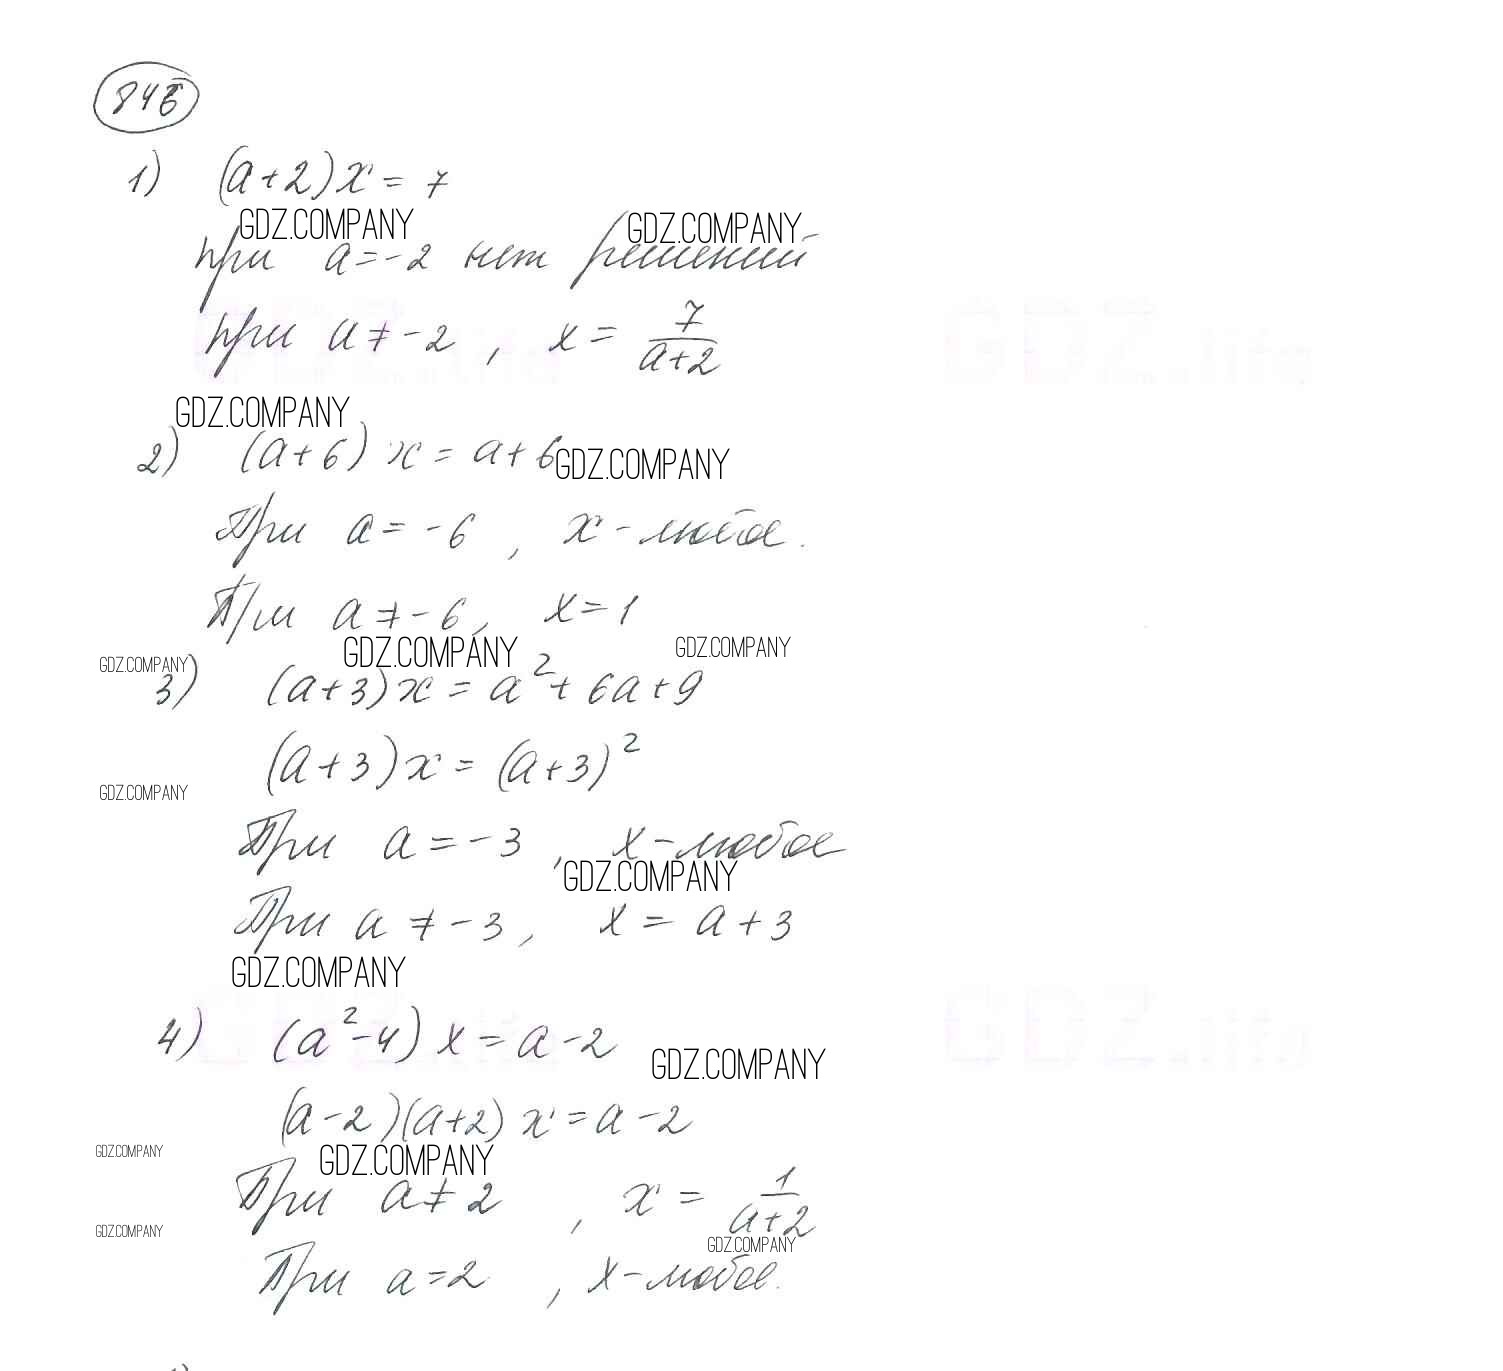 846
1) (a+2)x = 7
GDZ.COMPANY GDZ.COMPANY
при a = -2 нет решений
при a ≠ -2, x = 7/(a+2)
GDZ.life GDZ.life
GDZ.COMPANY
2) (a+6)x = a+6
GDZ.COMPANY
При a = -6, x - любое.
При a ≠ -6, x = 1
GDZ.COMPANY GDZ.COMPANY GDZ.COMPANY
3) (a+3)x = a² + 6a + 9
(a+3)x = (a+3)²
GDZ.COMPANY
При a = -3, x - любое
GDZ.COMPANY
При a ≠ -3, x = a+3
GDZ.COMPANY
GDZ.life GDZ.life
4) (a²-4)x = a-2
GDZ.COMPANY
(a-2)(a+2)x = a-2
GDZ.COMPANY GDZ.COMPANY
При a ≠ 2, x = 1/(a+2)
GDZ.COMPANY GDZ.COMPANY
При a = 2, x - любое.